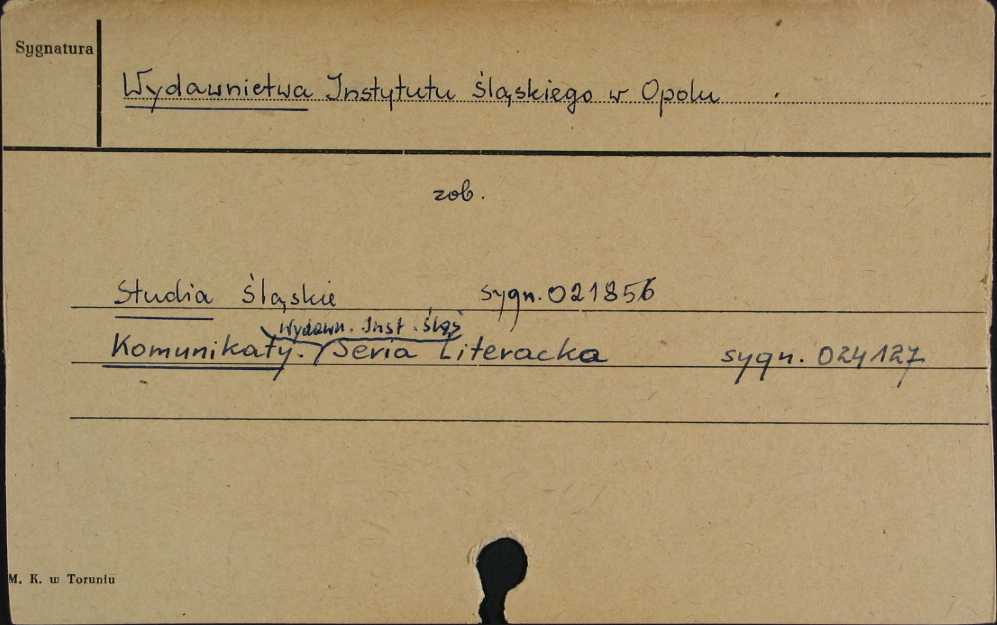 Sygnatura
Wydawnictwa Instytutu Śląskiego w Opolu
zob.
Studia Śląskie sygn. 021856
Wydawn. Inst. Śląs
Komunikaty. Seria Literacka sygn. 024127
M. K. w Toruniu